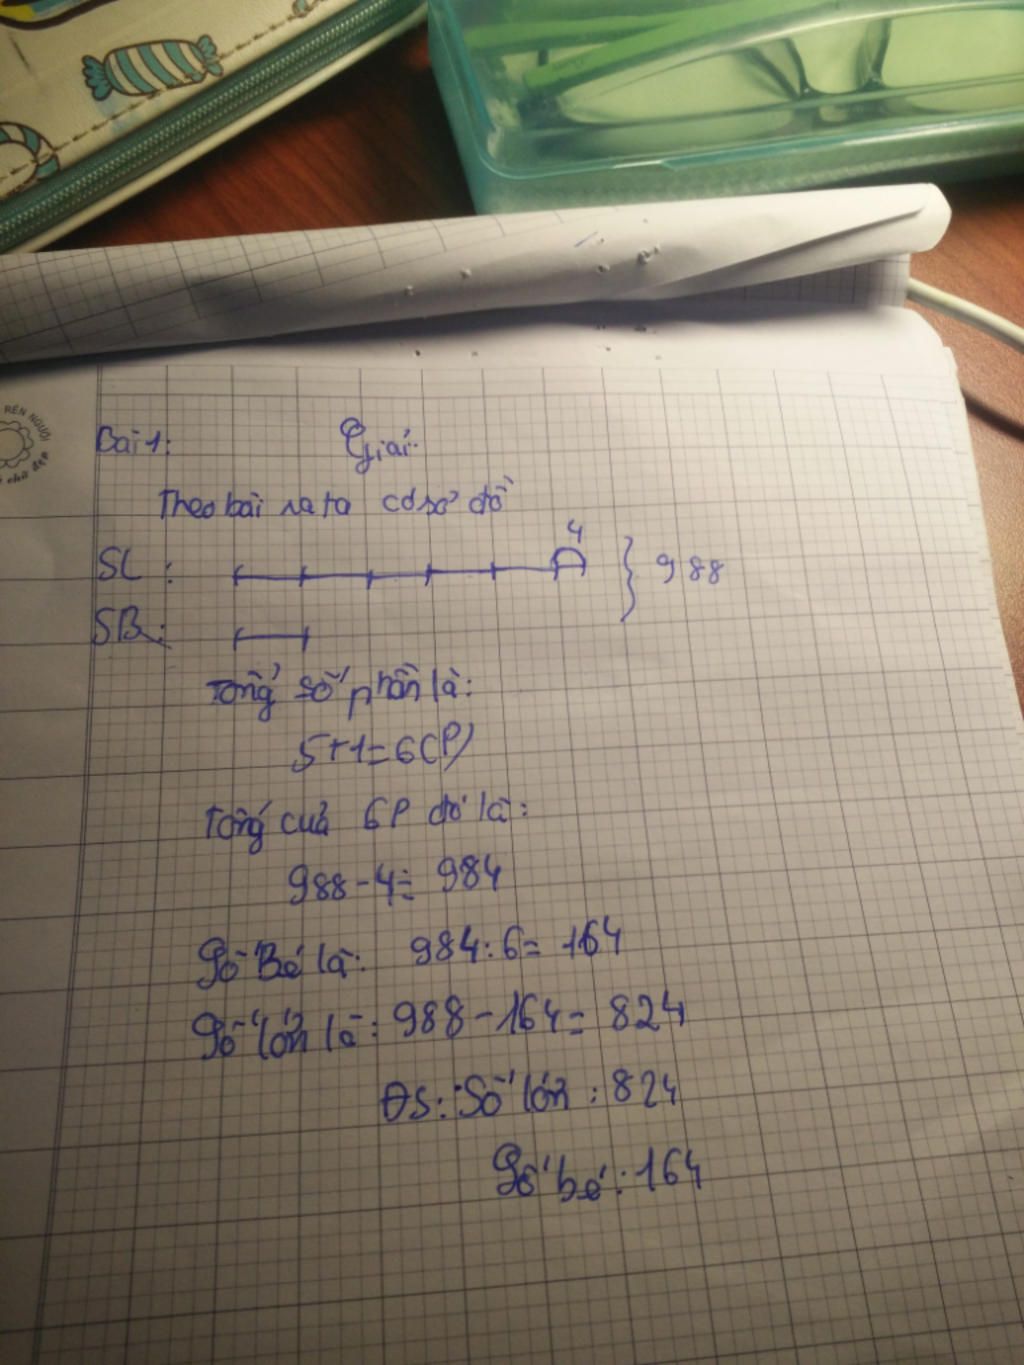 RÈN NGƯỜI
chữ đẹp
Bài 1: Giải
Theo bài ra ta có sơ đồ
4
SL : } 988
SB :
Tổng số phần là:
5+1=6(P)
Tổng của 6P đó là:
988-4= 984
Số Bé là: 984:6= 164
Số lớn là: 988-164= 824
ĐS: Số lớn : 824
Số bé : 164